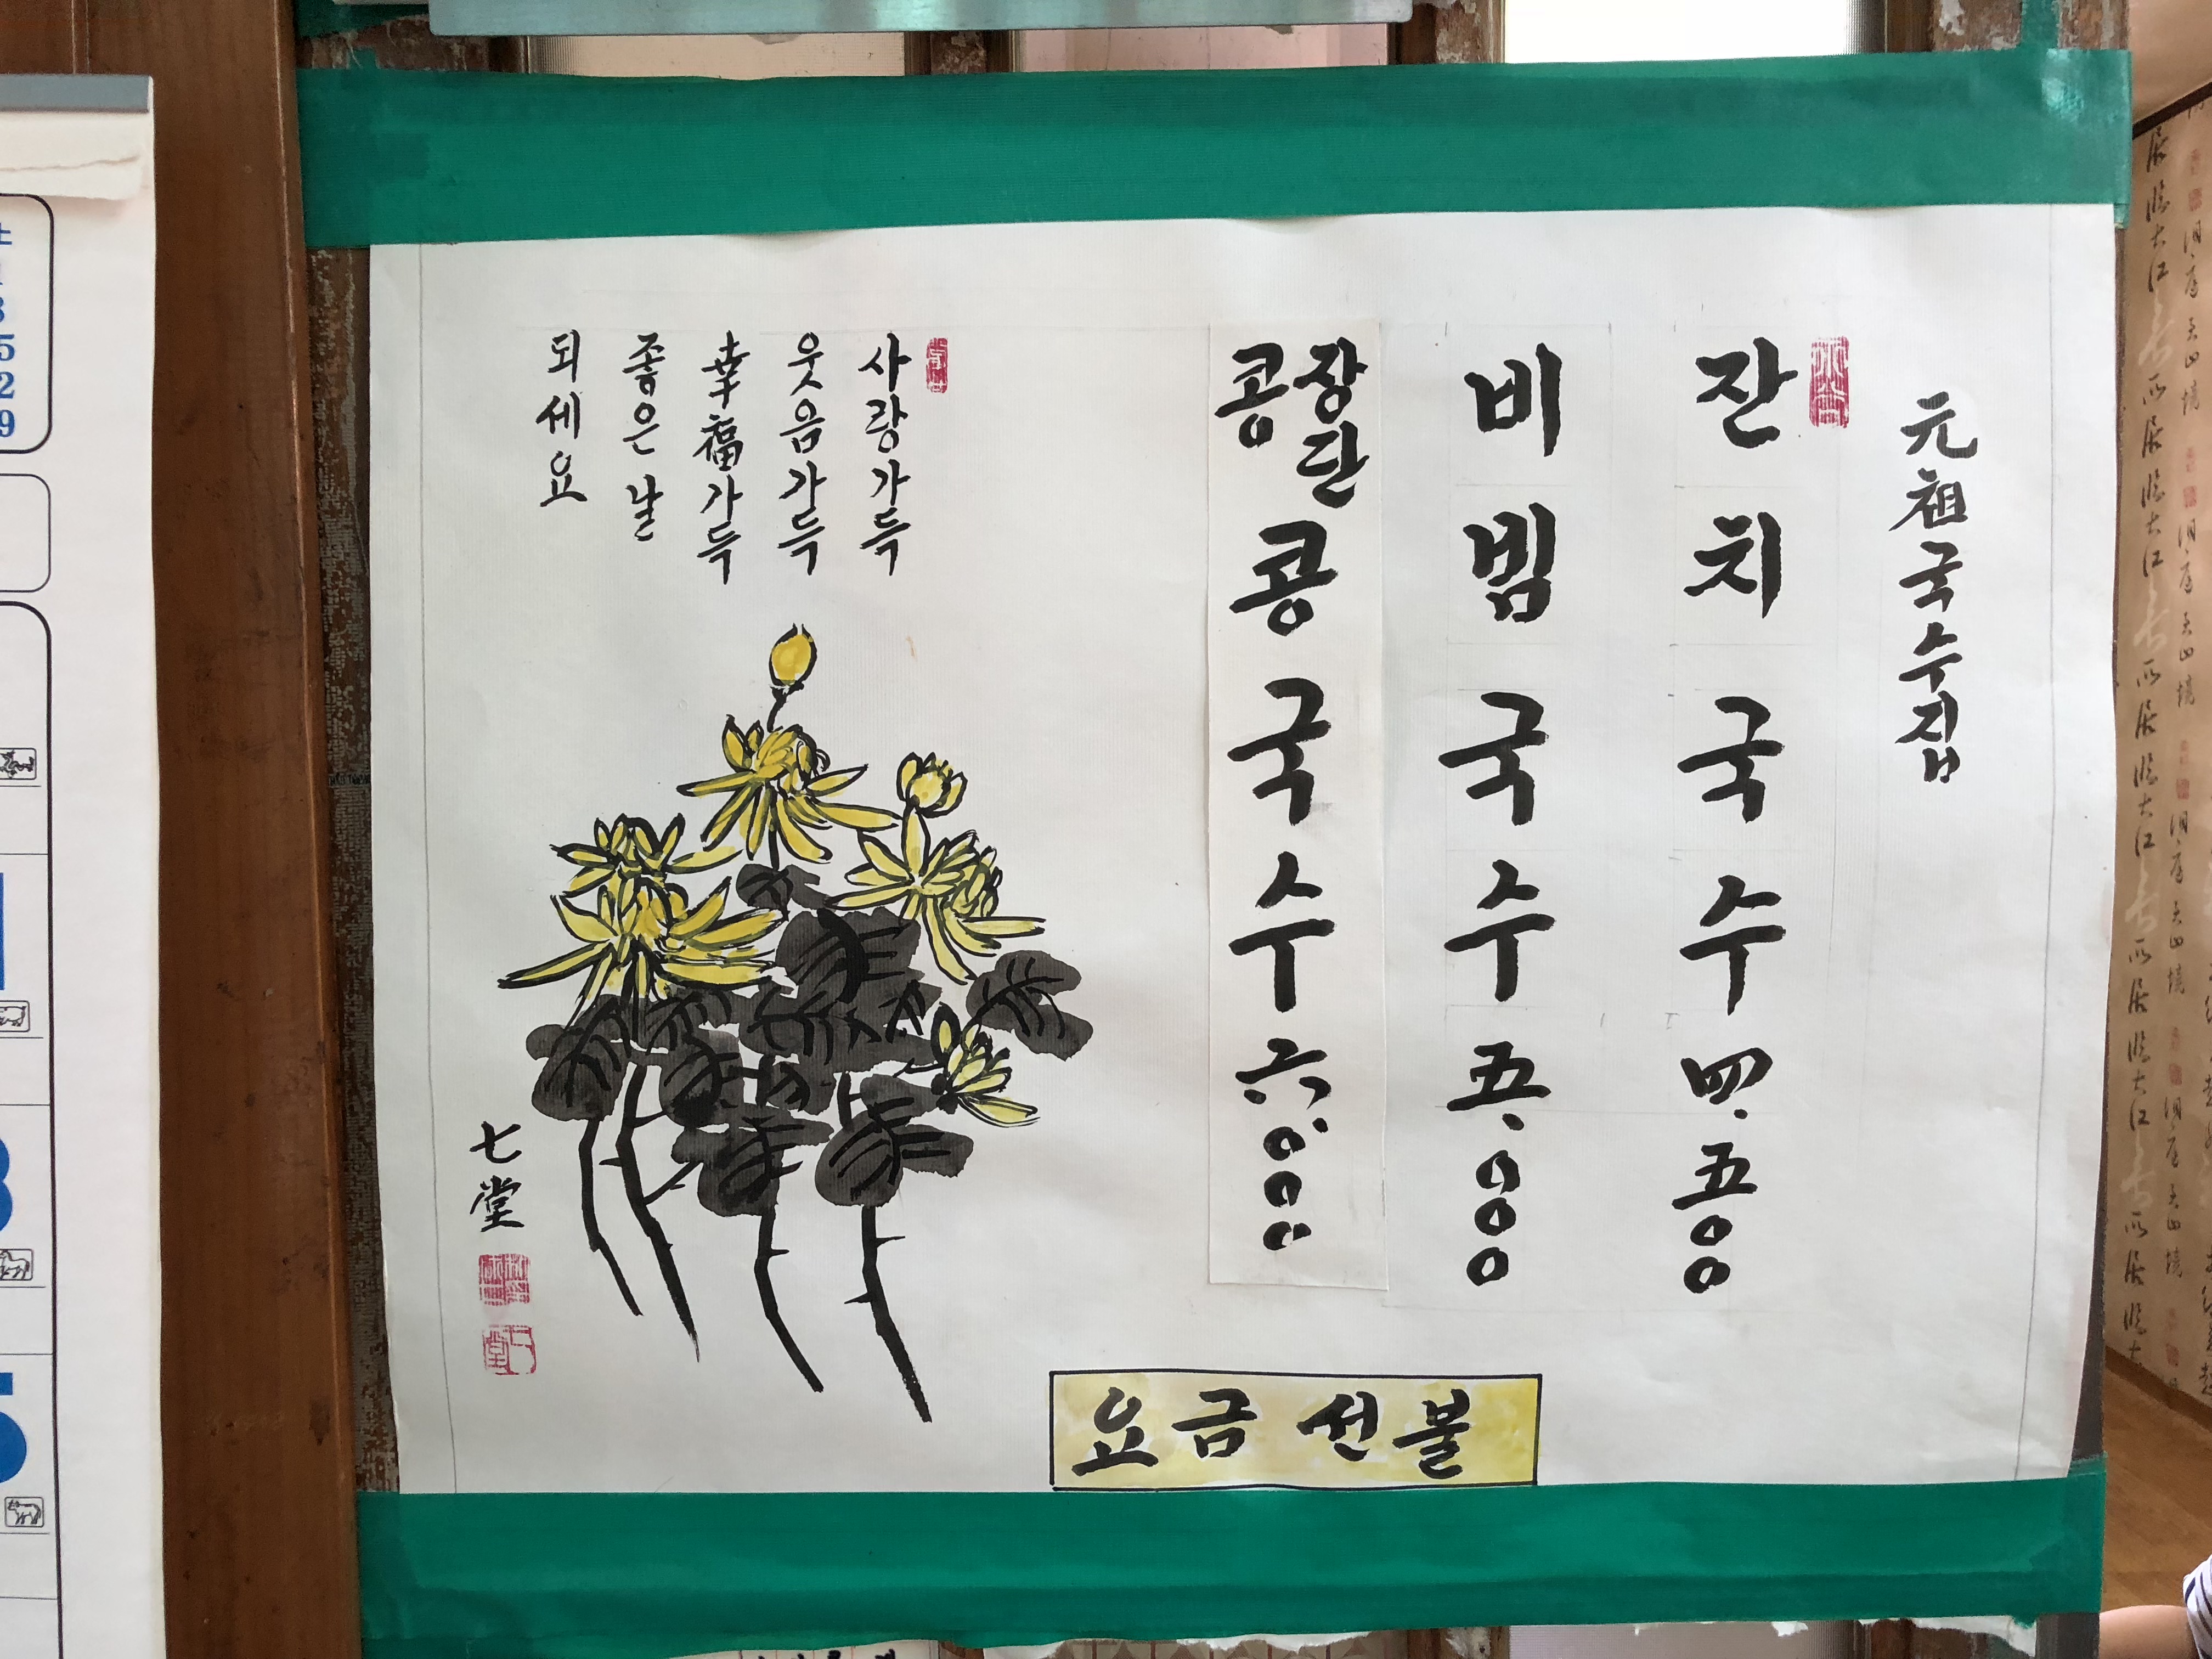 元祖국수집
잔치국수 四.五00
비빔국수 五.000
장단콩 콩국수 六.000
사랑가득
웃음가득
幸福가득
좋은 날
되세요
七堂
요금 선불